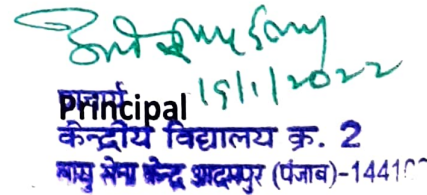 19/1/2022
प्राचार्य
Principal
केन्द्रीय विद्यालय क्र. 2
वायु सेना केन्द्र आदमपुर (पंजाब)-1441